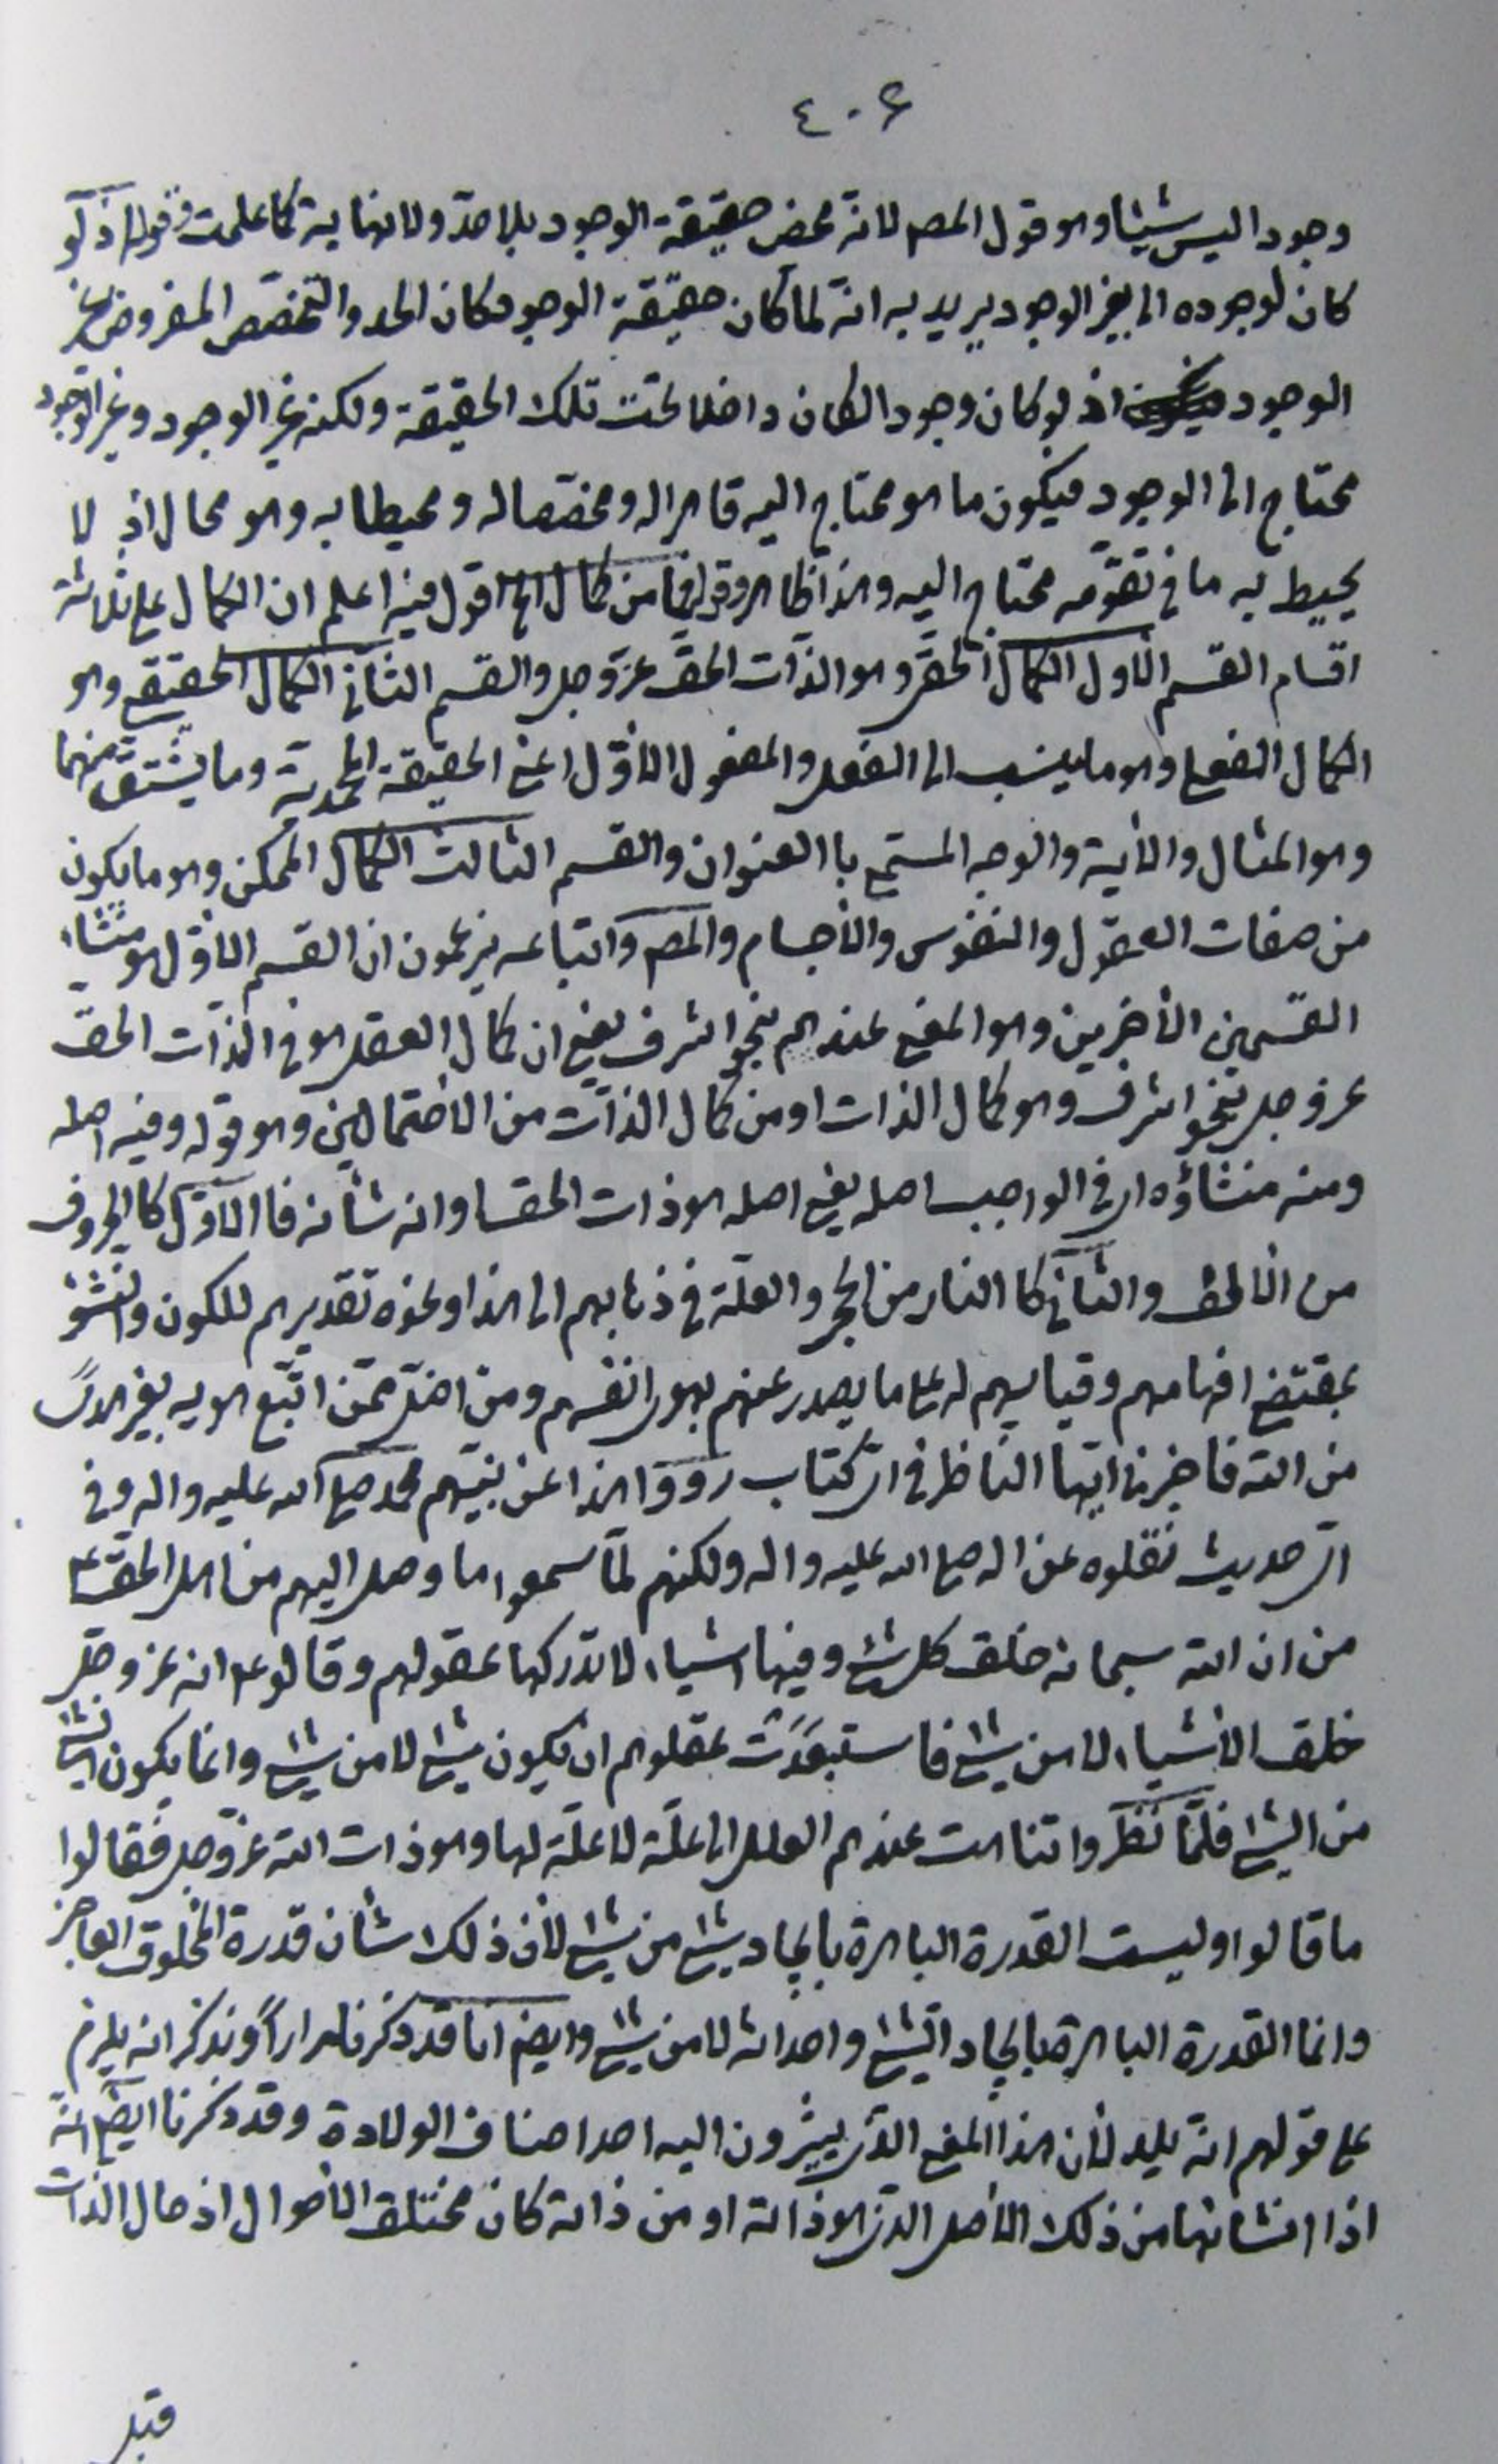 ٤٠٦
وجود اليس شيئا وهو قول المصم لانه محض حقيقة الوجود بلا حدّ ولا نهاية كما علمت وقوله اذ لو
كان لوجوده الى بغير الوجود يريد به انه لما كان حقيقة الوجود فكان الحد والتخصص المفروض غير
الوجود اذ لو كان وجودا لكان داخلا تحت تلك الحقيقة ولكنه غير الوجود وغير الوجود
محتاج الى الوجود فيكون ما هو محتاج اليه قاهرا له ومخصّصا له ومحيطا به وهو محال اذ لا
يحيط به ما في تقوّمه محتاج اليه وهذا ظاهر وقوله فما من كمال الخ اقول فيه اعلم ان الكمال على ثلاثة
اقسام القسم الأول الكمال الحق وهو الذات الحق عزّ وجل والقسم الثاني الكمال الحقيقي وهو
الكمال الفعلي وهو ما ينسب الى الفعل والمفعول الأوّل اعني الحقيقة المحمدية وما يشتق منهما
وهو المثال والأية والوجه المسمّى با العنوان والقسم الثالث الكمال الممكن وهو ما يكون
من صفات العقول والنفوس والأجسام والمصم واتباعه يزعمون ان القسم الأوّل هو منشاء
القسمين الأخيرين وهو المعنى عندهم بنحو اشرف يعني ان كمال العقل هو في الذات الحق
عز وجل بنحو اشرف وهو كمال الذات او من كمال الذات من الأحتمالين وهو قوله وفيه اصله
ومنه منشاؤه اي في الواجب اصله يعني اصله هو ذات الحق او انه شأنه فا الأوّل كا الحروف
من الالف والثاني كا النار من الحجر والعلّة في ذهابهم الى هذا ونحوه تقديرهم للكون والنشؤ
بمقتضى افهامهم وقياسهم له على ما يصدر عنهم بهوى انفسهم ومن اضلّ ممّن اتّبع هويه بغير هدىً
من الله فاخبرنى ايّها الناظر في اىّ كتاب رووا هذا عن نبيّهم محمد صلى الله عليه واله وفي
اىّ حديث نقلوه عن اله صلى الله عليه واله ولكنهم لمّا سمعوا ما وصل اليهم من اهل الحق ع
من ان الله سبحانه خلق كل شئ وفيها اشياء لا تدركها عقولهم وقالوع انه عز وجلّ
خلق الأشياء لا من شئ فاستبعَدَتْ عقلوهم ان يكون شئ لا من شئ وانما يكون الشئ
من الشئ فلمّا نظروا تناهت عندهم العلل الى علّة لا علّة لها وهو ذات الله عزّ وجل فقالوا
ما قالوا وليست القدرة الباهرة بايجاد شئ من شئ لأن ذلك شأن قدرة المخلوق العاجز
وانما القدرة الباهرة بايجاد الشئ واحداثه لا من شئ وايضا انا قد ذكرنا مراراً ونذكر انه يلزم
على قولهم انه يلد لأن هذا المعنى الذى يشيرون اليه احد اصناف الولادة وقد ذكرنا ايضا انه
اذا انشاها من ذلك الأصل الذى هو ذاته او من ذاته كان مختلف الأحوال اذ حال الذات
قبل